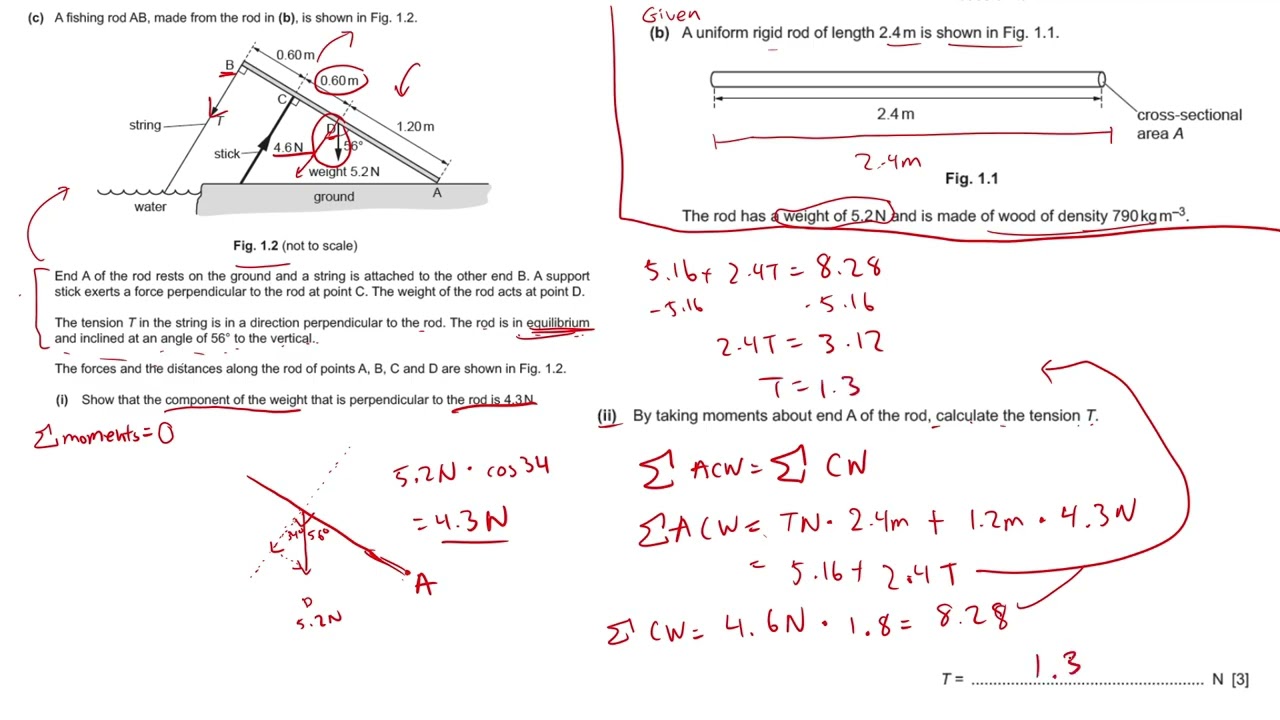 (c) A fishing rod AB, made from the rod in (b), is shown in Fig. 1.2.
0.60 m
B
0.60 m
C
T
string
1.20 m
D
stick
4.6 N
56°
weight 5.2 N
A
ground
water
Fig. 1.2 (not to scale)
End A of the rod rests on the ground and a string is attached to the other end B. A support
stick exerts a force perpendicular to the rod at point C. The weight of the rod acts at point D.
The tension T in the string is in a direction perpendicular to the rod. The rod is in equilibrium
and inclined at an angle of 56° to the vertical.
The forces and the distances along the rod of points A, B, C and D are shown in Fig. 1.2.
(i) Show that the component of the weight that is perpendicular to the rod is 4.3 N.
Σ moments = 0
5.2N · cos 34
= 4.3 N
34° 56°
A
D
5.2N
Given
(b) A uniform rigid rod of length 2.4 m is shown in Fig. 1.1.
2.4 m
cross-sectional
area A
2.4m
Fig. 1.1
The rod has a weight of 5.2 N and is made of wood of density 790 kg m⁻³.
5.16 + 2.4T = 8.28
-5.16 -5.16
2.4T = 3.12
T = 1.3
(ii) By taking moments about end A of the rod, calculate the tension T.
Σ ACW = Σ CW
Σ ACW = TN · 2.4m + 1.2m · 4.3N
= 5.16 + 2.4T
Σ CW = 4.6N · 1.8 = 8.28
1.3
T = ........................................................ N [3]